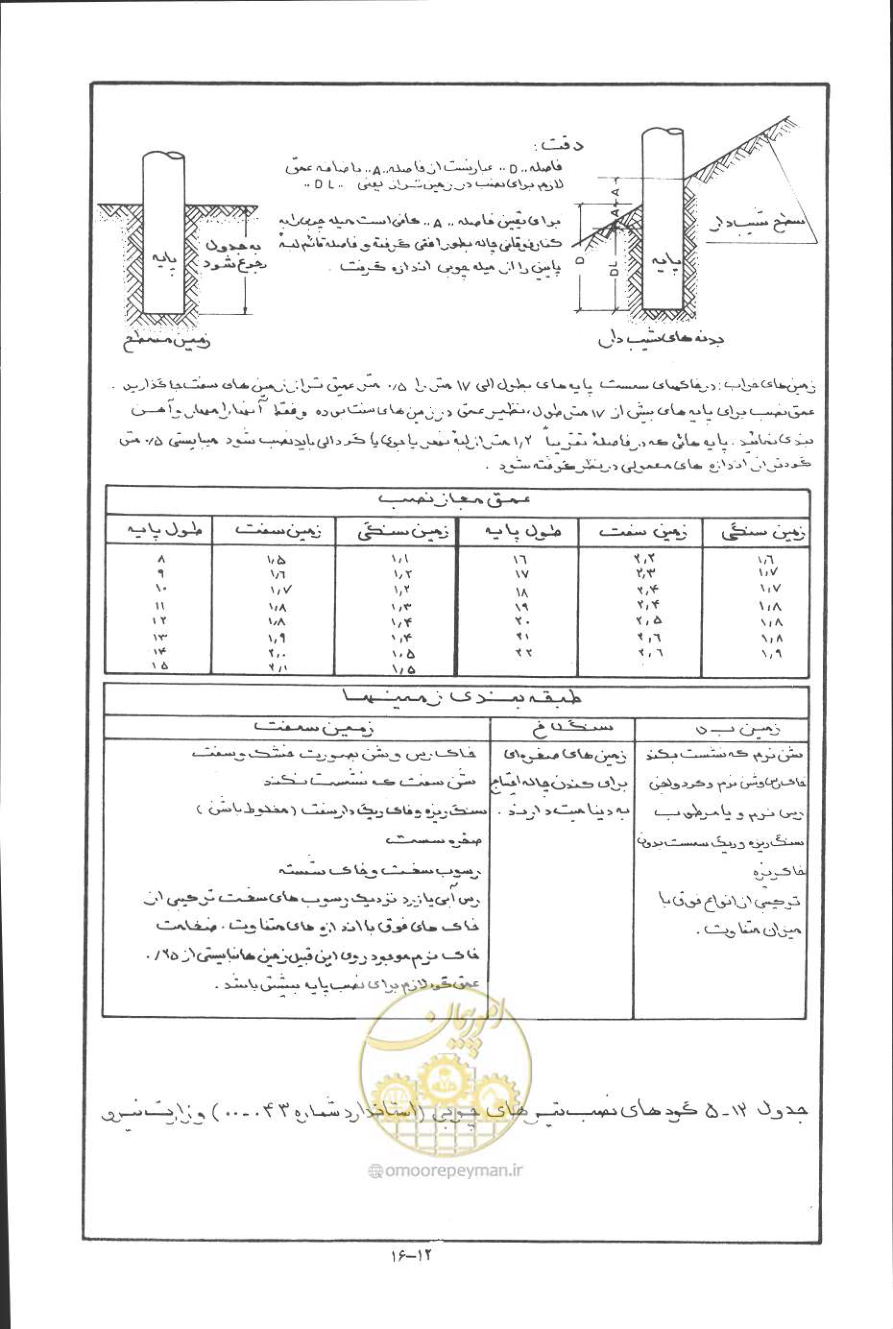 دقت :
فاصله ,, D ,, عبارتست از فاصله ,, A ,, باضافه عمق
لازم برای نصب در زمین تراز یعنی ,, DL ,,
برای تعیین فاصله ,, A ,, کافی است میله چوبی رابه
کنار فوقانی چاله بطور افقی گرفته و فاصله قائم لبهٔ
پایین را از میله چوبی اندازه گرفت .
پایه
به جدول
رجوع شود
زمین مسطح
A
A
D
DL
پایه
سطح شیب دار
بدنه های شیب دار
زمین های خراب : در خاکهای سست پایه های بطول الی ۱۷ متر را ۰٫۵ متر عمیق تر از زمین های سفت جاگذارید .
عمق نصب برای پایه های بیش از ۱۷ متر طول ، نظیر عمق در زمین های سفت بوده و فقط آنها را مهار و آهن
بندی نمائید . پایه هائی که در فاصلهٔ تقریباً ۱٫۲ متر از لبهٔ نهر یا جوی یا گودالی باید نصب شود میبایستی ۰٫۵ متر
گودتر از اندازه های معمولی در نظر گرفته شود .
عمق مجاز نصب
طول پایه	زمین سفت	زمین سنگی	طول پایه	زمین سفت	زمین سنگی
۸	۱٫۵	۱٫۱	۱۶	۲٫۲	۱٫۶
۹	۱٫۶	۱٫۲	۱۷	۲٫۳	۱٫۷
۱۰	۱٫۷	۱٫۲	۱۸	۲٫۴	۱٫۷
۱۱	۱٫۸	۱٫۳	۱۹	۲٫۴	۱٫۸
۱۲	۱٫۸	۱٫۴	۲۰	۲٫۵	۱٫۸
۱۳	۱٫۹	۱٫۴	۲۱	۲٫۶	۱٫۸
۱۴	۲٫۰	۱٫۵	۲۲	۲٫۶	۱٫۹
۱۵	۲٫۱	۱٫۵
طبقه بندی زمینها
زمین بد
شن نرم که نشست بکند
خاک رس و شن نرم و گرد و لجن
رس نرم و یا مرطوب
سنگ ریزه و ریگ سست بدون
خاکریزه
ترکیبی از انواع فوق با
میزان متفاوت .
سنگلاخ
زمین های صخره ای
برای کندن چاله احتیاج
به دینامیت دارند .
زمین سفت
خاک رس و شن بصورت خشک و سفت
شن سفت که نشست نکند
سنگ ریزه و خاک ریگ دار سفت ( مخلوط با شن )
صخره سست
رسوب سفت و خاک شسته
رس آبی یا زرد نزدیک رسوب های سفت ترکیبی از
خاک های فوق با اندازه های متفاوت . ضخامت
خاک نرم موجود روی این قبیل زمین ها نبایستی از ۲۵٪
عمق گود لازم برای نصب پایه بیشتر باشد .
امور پیمان
@omoorepeyman.ir
جدول ۱۲-۵ گودهای نصب تیرهای چوبی (استاندارد شماره ۰۴۳-۰۰) وزارت نیرو
۱۶-۱۲